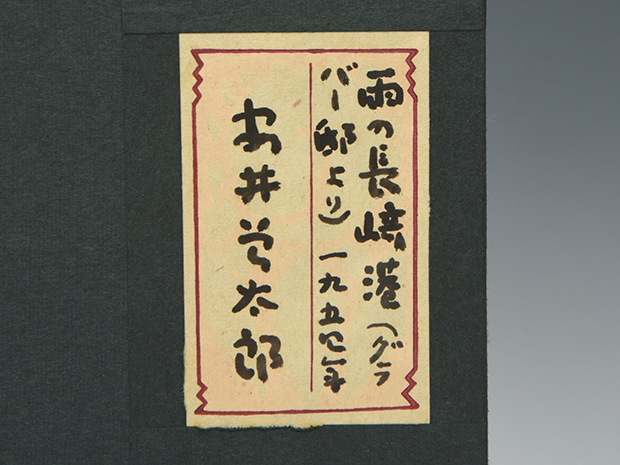 雨の長崎港(グラ
バー邸より)一九五年
安井曽太郎